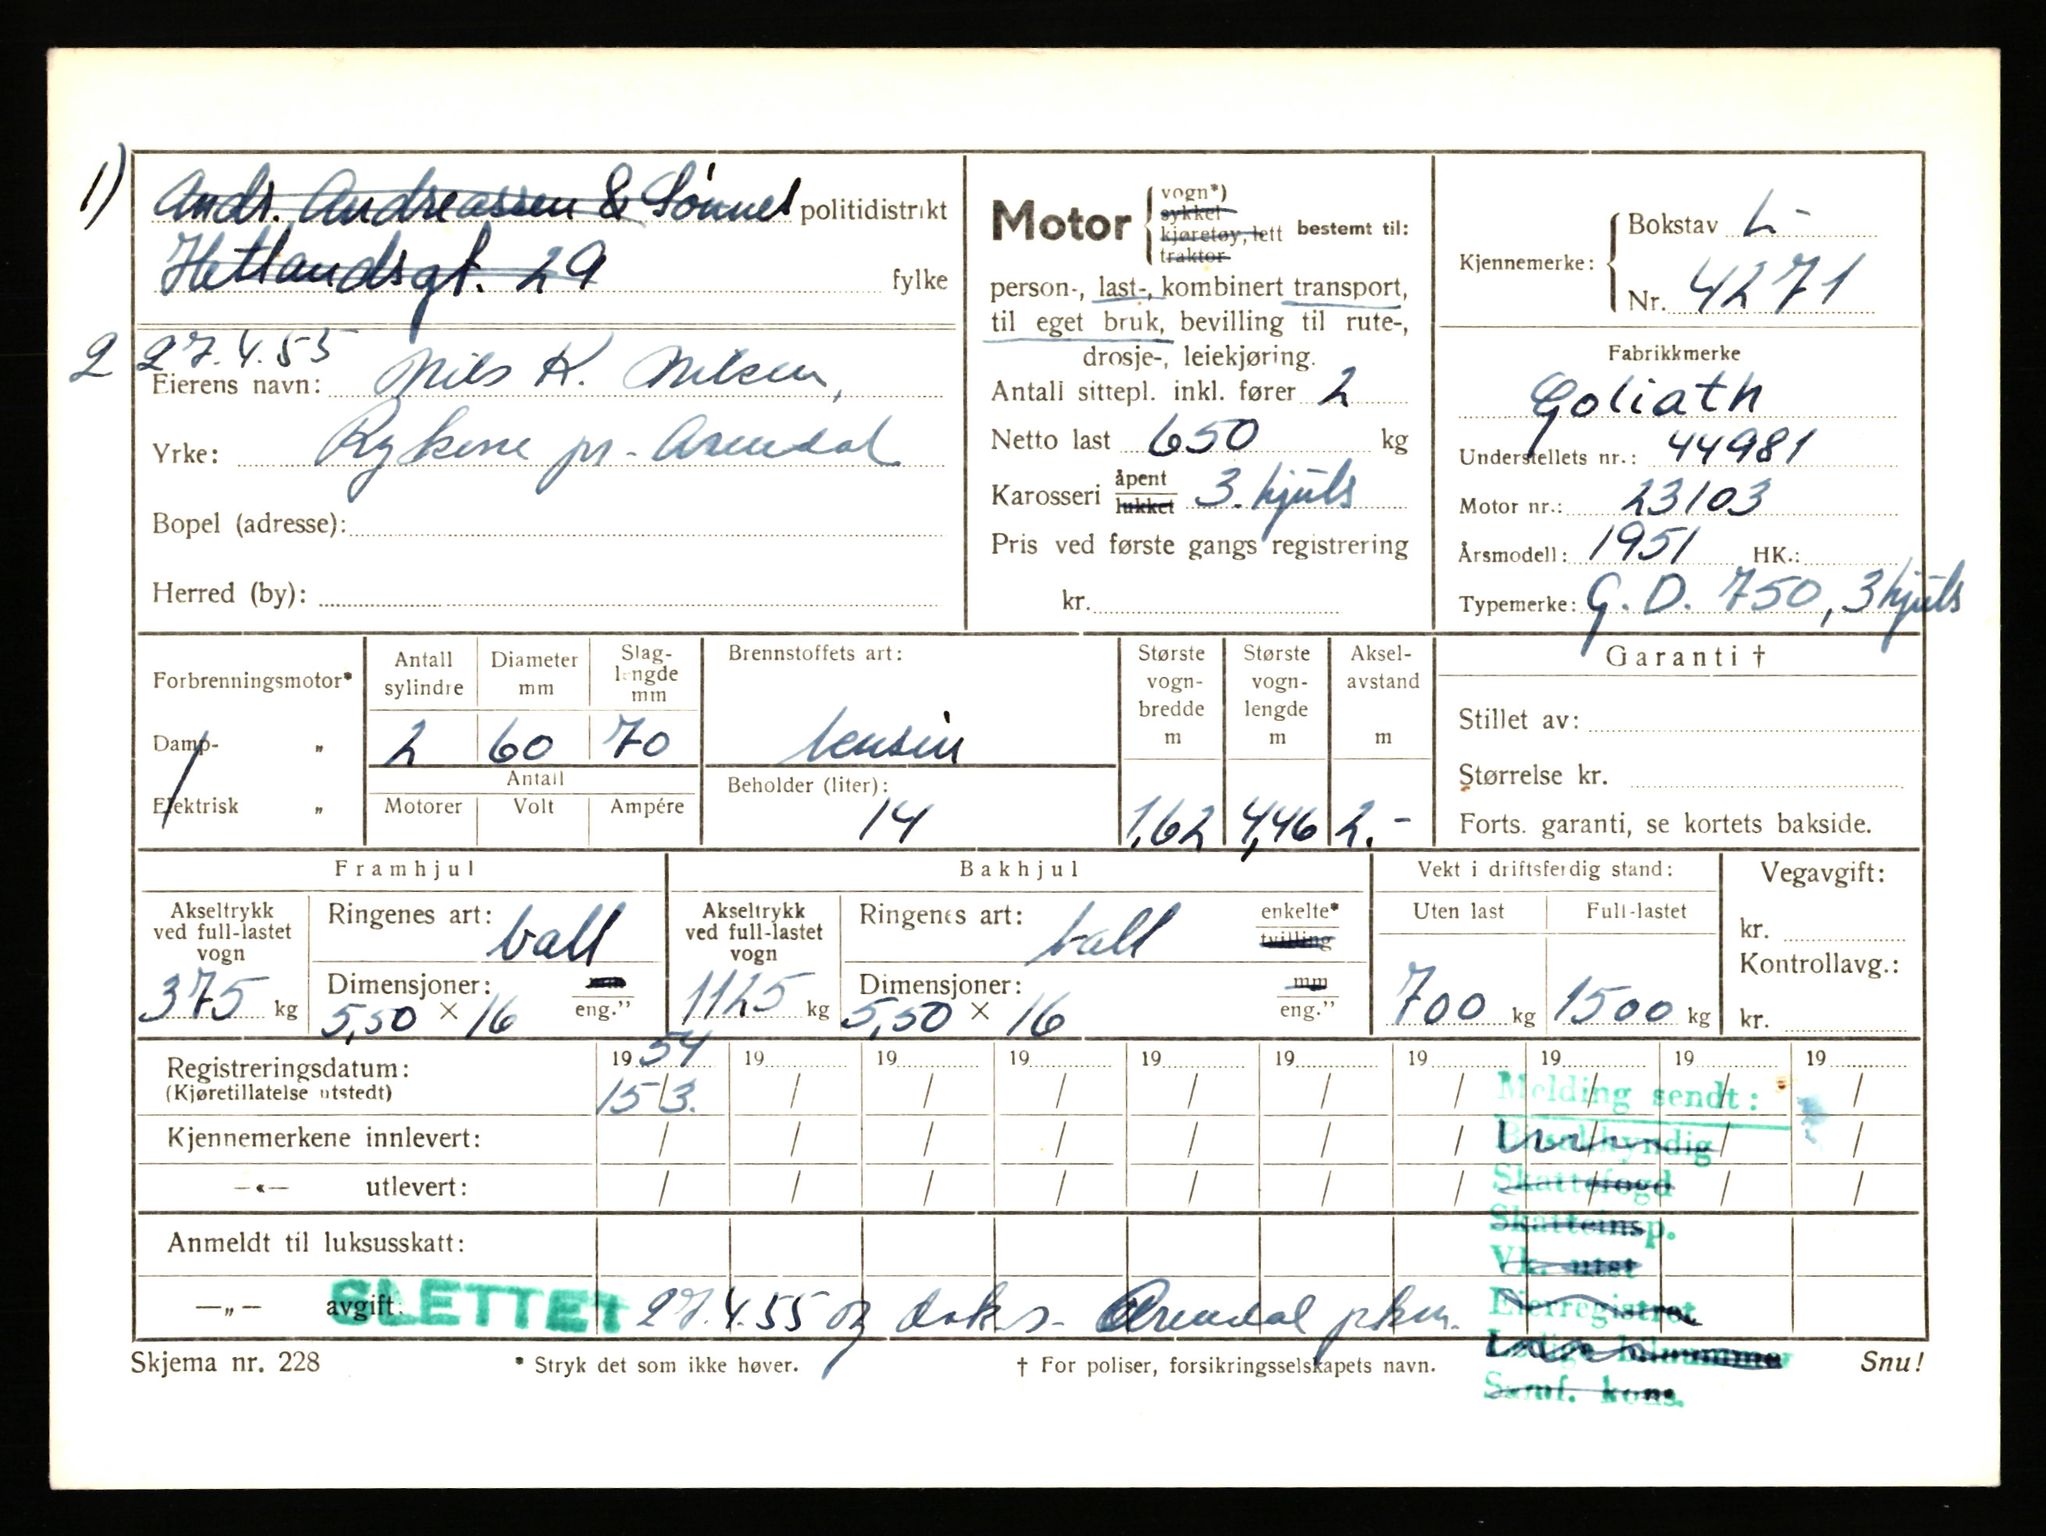 1) Andr. Andreassen & Sønner politidistrikt
Hetlandsgt. 29 fylke
2 27.4.55
Eierens navn: Nils K. Nilsen,
Yrke: Rykene pr. Arendal
Bopel (adresse):
Herred (by):
Motor { vogn*)
sykkel
kjøretøy, lett
traktor
bestemt til:
person-, last-, kombinert transport,
til eget bruk, bevilling til rute-,
drosje-, leiekjøring.
Antall sittepl. inkl. fører 2
Netto last 650 kg
Karosseri åpent
lukket 3. hjuls
Pris ved første gangs registrering
kr.
Kjennemerke: { Bokstav L-
Nr. 4271
Fabrikkmerke
Goliath
Understellets nr.: 44981
Motor nr.: 23103
Årsmodell: 1951 HK.:
Typemerke: G. D. 750, 3 hjuls
Forbrenningsmotor*
Damp- „
Elektrisk „
Antall sylindre
Diameter mm
Slag-lengde mm
2 60 70
Antall
Motorer Volt Ampére
Brennstoffets art:
bensin
Beholder (liter):
14
Største vogn-bredde m
1,62
Største vogn-lengde m
4,46
Aksel-avstand m
2.-
Garanti †
Stillet av:
Størrelse kr.
Forts. garanti, se kortets bakside.
Framhjul
Akseltrykk
ved full-lastet
vogn
375 kg
Ringenes art: ball
Dimensjoner: mm
5,50 × 16 eng.”
Bakhjul
Akseltrykk
ved full-lastet
vogn
1125 kg
Ringenes art: ball enkelte*
tvilling
Dimensjoner: mm
5,50 × 16 eng.”
Vekt i driftsferdig stand:
Uten last Full-lastet
700 kg 1500 kg
Vegavgift:
kr.
Kontrollavg.:
kr.
Registreringsdatum: 19 54 19 19 19 19 19 19 19 19 19
(Kjøretillatelse utstedt) 15/3. / / / / / / / / /
Kjennemerkene innlevert: / / / / / / / / / /
—«— utlevert: / / / / / / / / / /
Anmeldt til luksusskatt:
—„— avgift: SLETTET 27.4.55 og doks. Arendal pkm.
Melding sendt:
Skattefogd
Skatteinsp.
Vk. utst
Eierregistret
Ledige bilnummer
Samf. kons.
Skjema nr. 228
* Stryk det som ikke høver.
† For poliser, forsikringsselskapets navn.
Snu!